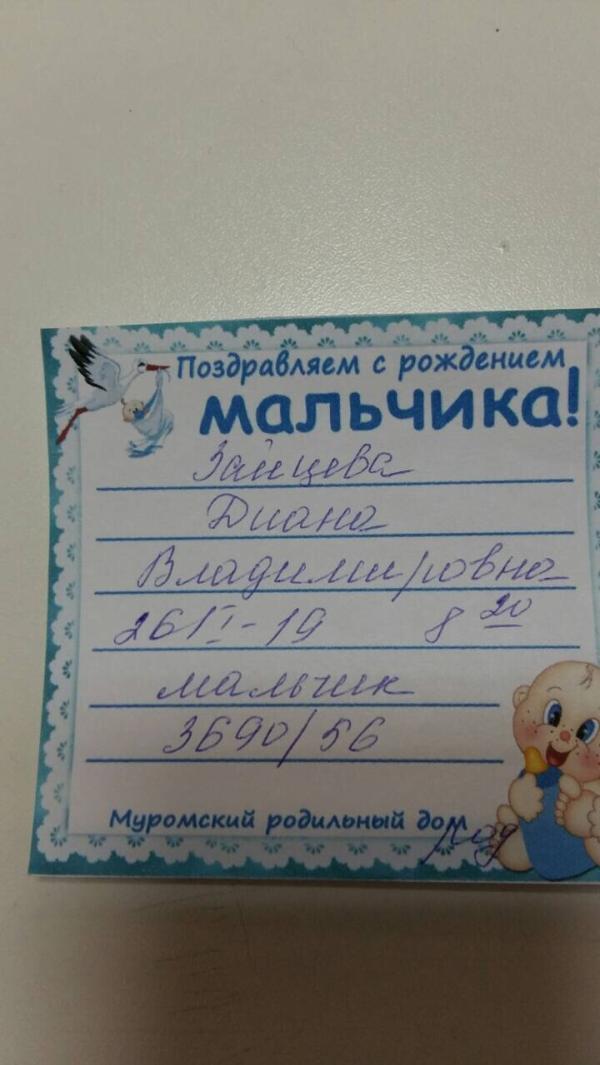 Поздравляем с рождением
мальчика!
Зайцева
Диана
Владимировна
26 I-19 8 20
мальчик
3690/56
Муромский родильный дом